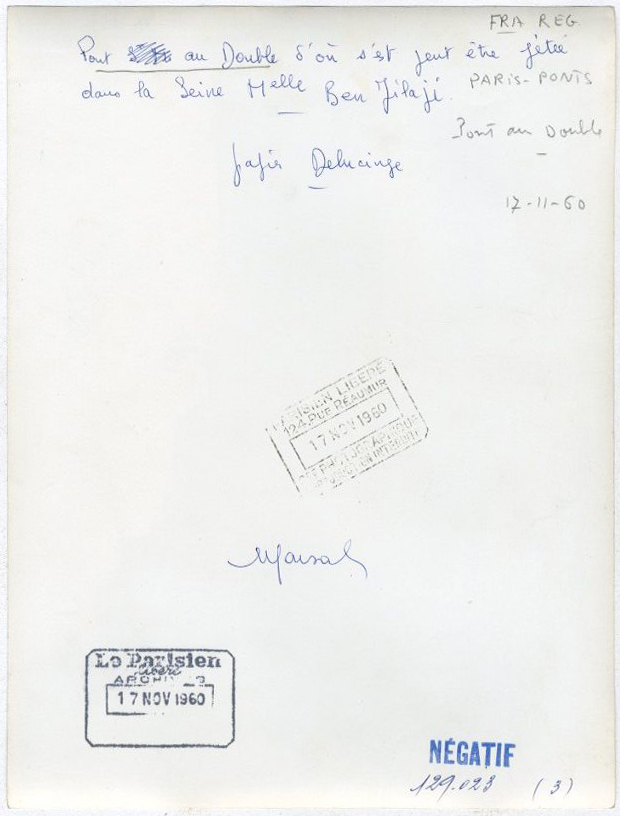 FRA REG
Pont au Double d'où s'est peut être jetée
dans la Seine Melle Ben Jilaji.
PARIS-PONTS
Pont au Double
papier Delucinge
17-11-60
PARISIEN LIBÉRÉ
124, RUE RÉAUMUR
17 NOV 1960
PHOTOGRAPHIQUE
INTERDIT
Le Parisien
libéré
ARCHIVES
17 NOV 1960
NÉGATIF
129.023 (3)